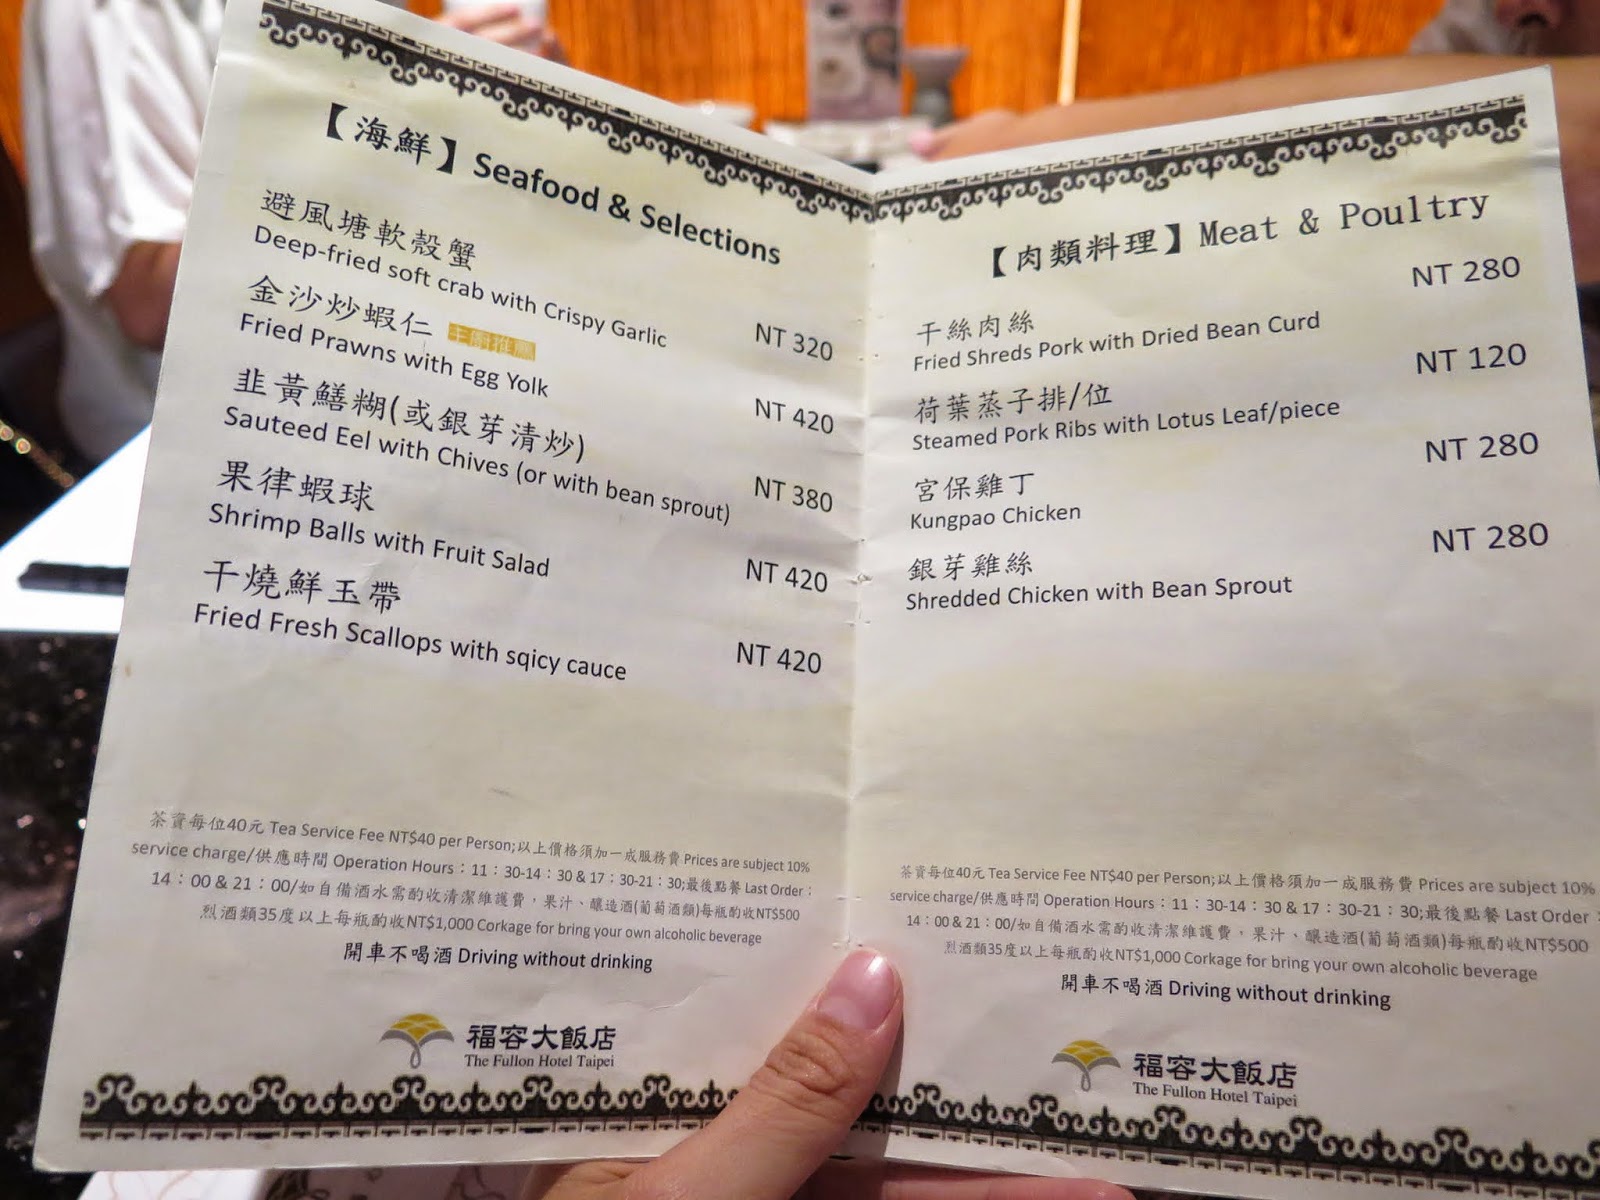 【海鮮】Seafood & Selections
避風塘軟殼蟹
Deep-fried soft crab with Crispy Garlic
NT 320
金沙炒蝦仁 主廚推薦
Fried Prawns with Egg Yolk
NT 420
韭黃鱔糊(或銀芽清炒)
Sauteed Eel with Chives (or with bean sprout)
NT 380
果律蝦球
Shrimp Balls with Fruit Salad
NT 420
干燒鮮玉帶
Fried Fresh Scallops with sqicy cauce
NT 420
茶資每位40元 Tea Service Fee NT$40 per Person;以上價格須加一成服務費 Prices are subject 10%
service charge/供應時間 Operation Hours：11：30-14：30 & 17：30-21：30;最後點餐 Last Order：
14：00 & 21：00/如自備酒水需酌收清潔維護費，果汁、釀造酒(葡萄酒類)每瓶酌收NT$500
烈酒類35度以上每瓶酌收NT$1,000 Corkage for bring your own alcoholic beverage
開車不喝酒 Driving without drinking
福容大飯店
The Fullon Hotel Taipei
【肉類料理】Meat & Poultry
NT 280
干絲肉絲
Fried Shreds Pork with Dried Bean Curd
NT 120
荷葉蒸子排/位
Steamed Pork Ribs with Lotus Leaf/piece
NT 280
宮保雞丁
Kungpao Chicken
NT 280
銀芽雞絲
Shredded Chicken with Bean Sprout
茶資每位40元 Tea Service Fee NT$40 per Person;以上價格須加一成服務費 Prices are subject 10%
service charge/供應時間 Operation Hours：11：30-14：30 & 17：30-21：30;最後點餐 Last Order：
14：00 & 21：00/如自備酒水需酌收清潔維護費，果汁、釀造酒(葡萄酒類)每瓶酌收NT$500
烈酒類35度以上每瓶酌收NT$1,000 Corkage for bring your own alcoholic beverage
開車不喝酒 Driving without drinking
福容大飯店
The Fullon Hotel Taipei